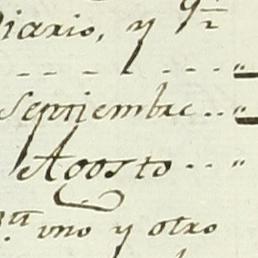 Diario, y
Septiembre .. "
Agosto .. "
uno y otro